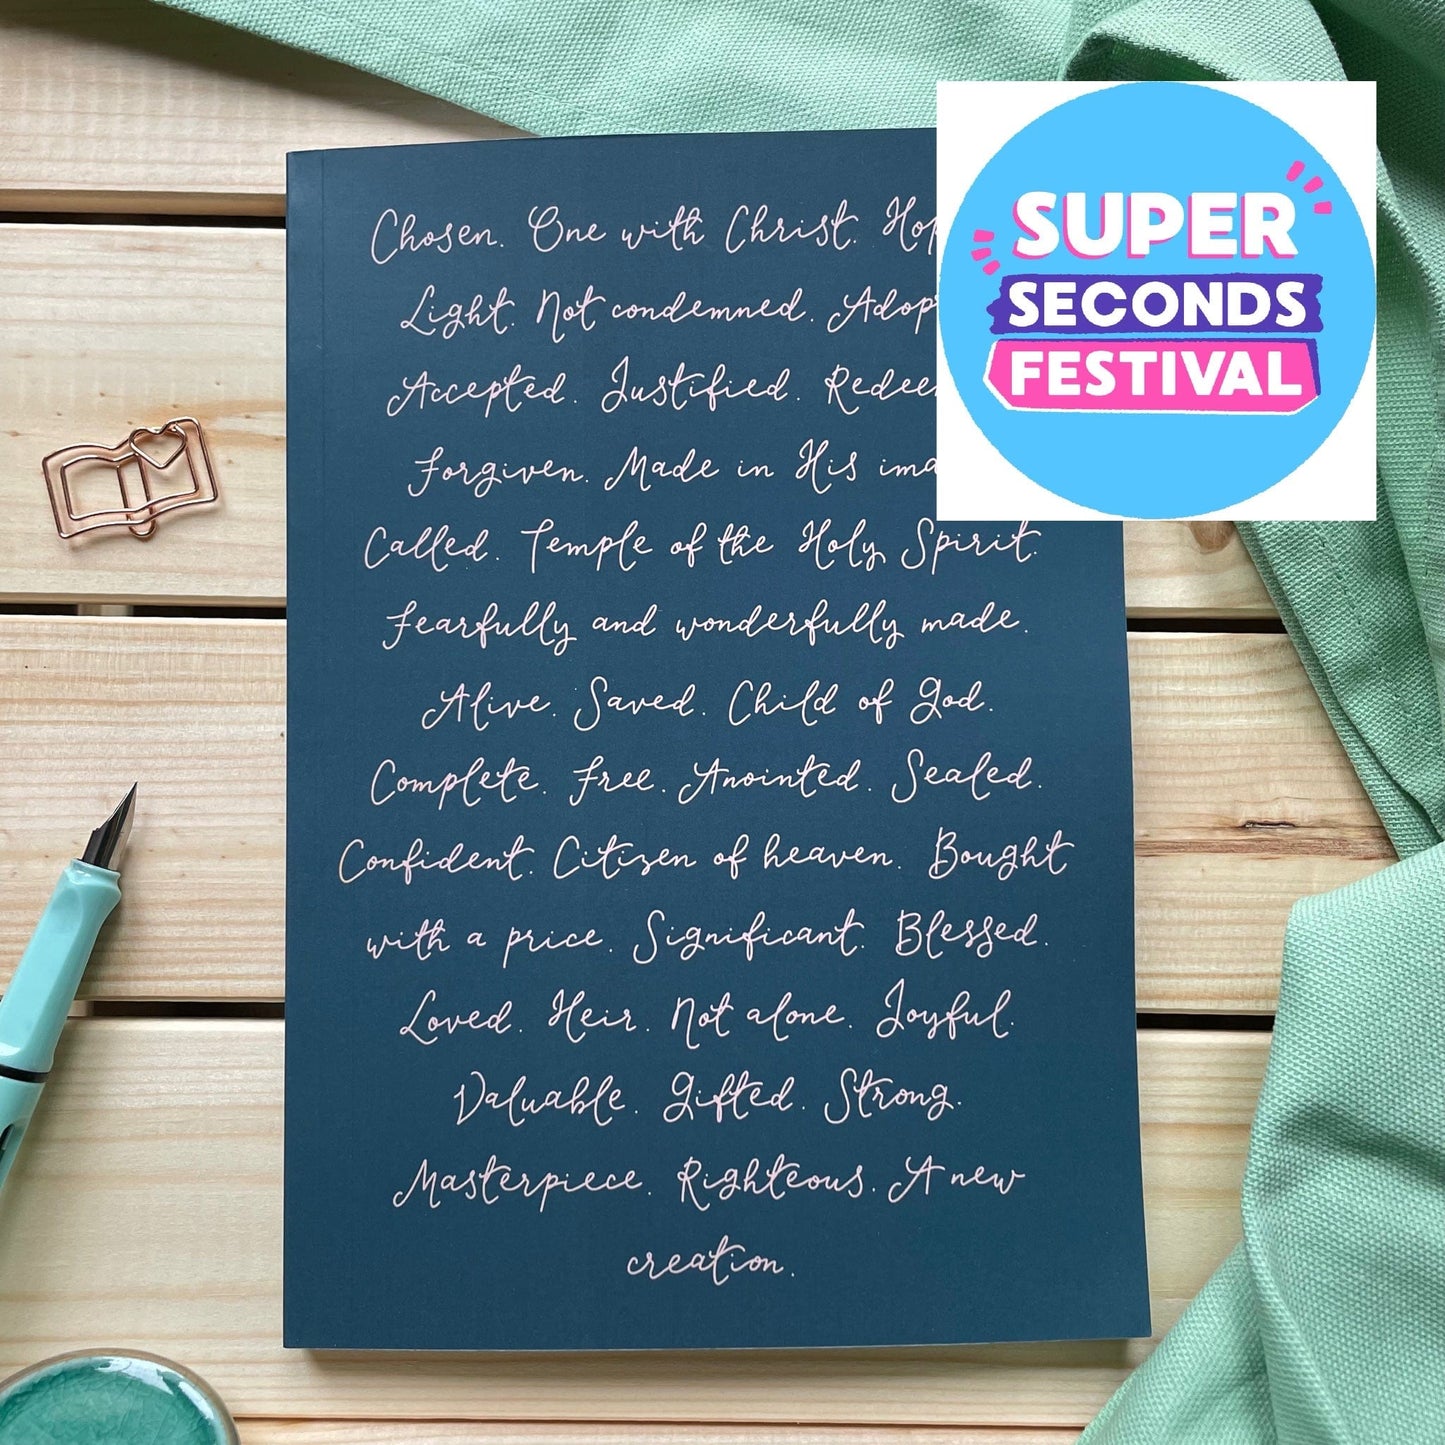 Chosen. One with Christ.
Light. Not condemned.
Accepted. Justified.
Forgiven. Made in His
Called. Temple of the Holy Spirit.
Fearfully and wonderfully made.
Alive. Saved. Child of God.
Complete. Free. Anointed. Sealed.
Confident. Citizen of heaven. Bought
with a price. Significant. Blessed.
Loved. Heir. Not alone. Joyful.
Valuable. Gifted. Strong.
Masterpiece. Righteous. A new
creation.
SUPER
SECONDS
FESTIVAL